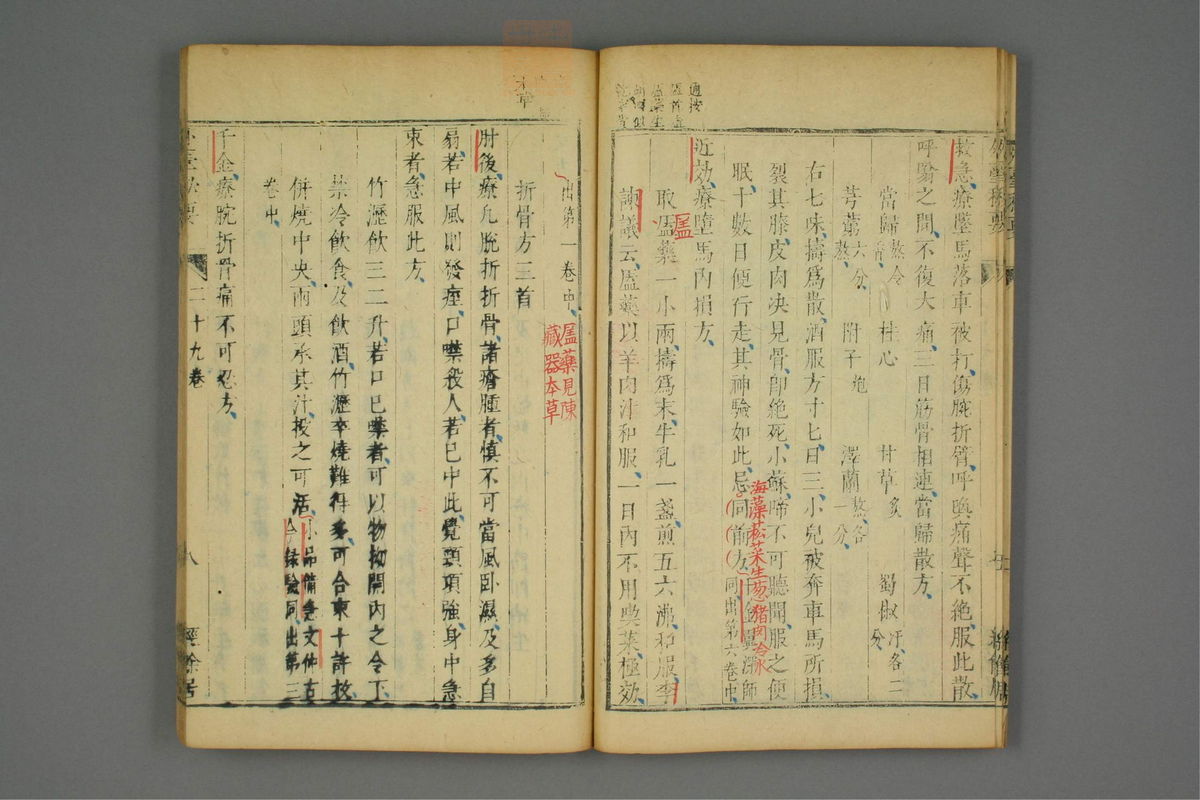 救急療墜馬落車被打傷腕折臂呼喚痛聲不絕服此散
呼吸之間不復大痛三日筋骨相連當歸散方
當歸熬令香 桂心 甘草炙 蜀椒汗各二分
芎藭六分熬 附子炮 澤蘭熬各一分
右七味擣為散酒服方寸匕日三小兒被奔車馬所損
裂其膝皮肉決見骨即絕死小蘇啼不可聽聞服之便
眠十數日便行走其神驗如此忌同前方千金翼深師同出第六卷中
海藻菘菜生葱猪肉冷水
近効療墮馬內損方
取藥一小兩擣為末牛乳一盞煎五六沸和服李
諫議云藥以羊肉汁和服一日內不用喫菜極効
出第一卷中
藥見陳
藏器本草
折骨方三首
肘後療凡脫折折骨諸瘡腫者慎不可當風臥濕及多自
扇若中風則發痙口噤殺人若已中此覺頸項強身中急
束者急服此方
竹瀝飲三二升若口已噤者可以物拗開內之令下
禁冷飲食及飲酒竹瀝卒燒難得多可合束十許枚
併燒中央兩頭承其汁投之可活小品備急文仲古今錄驗同出第三
卷中
千金療腕折骨痛不可忍方
二十九卷
八
經餘居